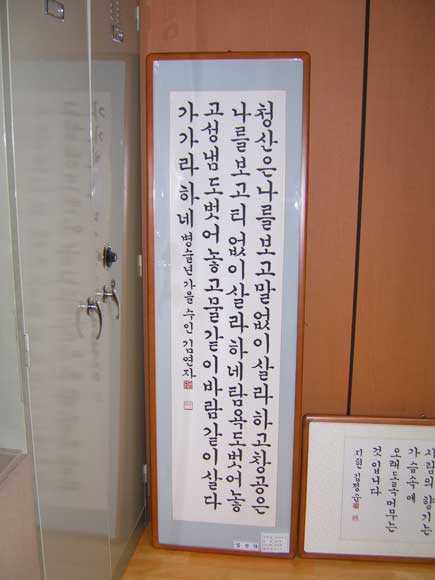 청산은나를보고말없이살라하고창공은
나를보고티없이살라하네탐욕도벗어놓
고성냄도벗어놓고물같이바람같이살다
가가라하네 병술년가을 수인 김연자
사람의 향기는
가슴속에
오래도록머무는
것입니다
김정순